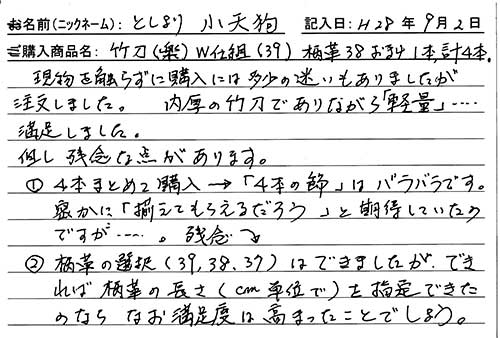 お名前(ニックネーム): としより 小天狗 記入日: H28年9月2日
ご購入商品名: 竹刀(楽)W仕組(39)柄革38おまけ1本計4本.
現物を触らずに購入には多少の迷いもありましたが
注文しました。 肉厚の竹刀でありながら「軽量」‥‥
満足しました。
但し残念な点があります。
① 4本まとめて購入→「4本の節」はバラバラです。
密かに「揃えてもらえるだろう」と期待していたの
ですが‥‥。残念
② 柄革の選択(39,38,37)はできましたが、でき
れば柄革の長さ(cm単位で)を指定できた
のならなお満足度は高まったことでしょう。